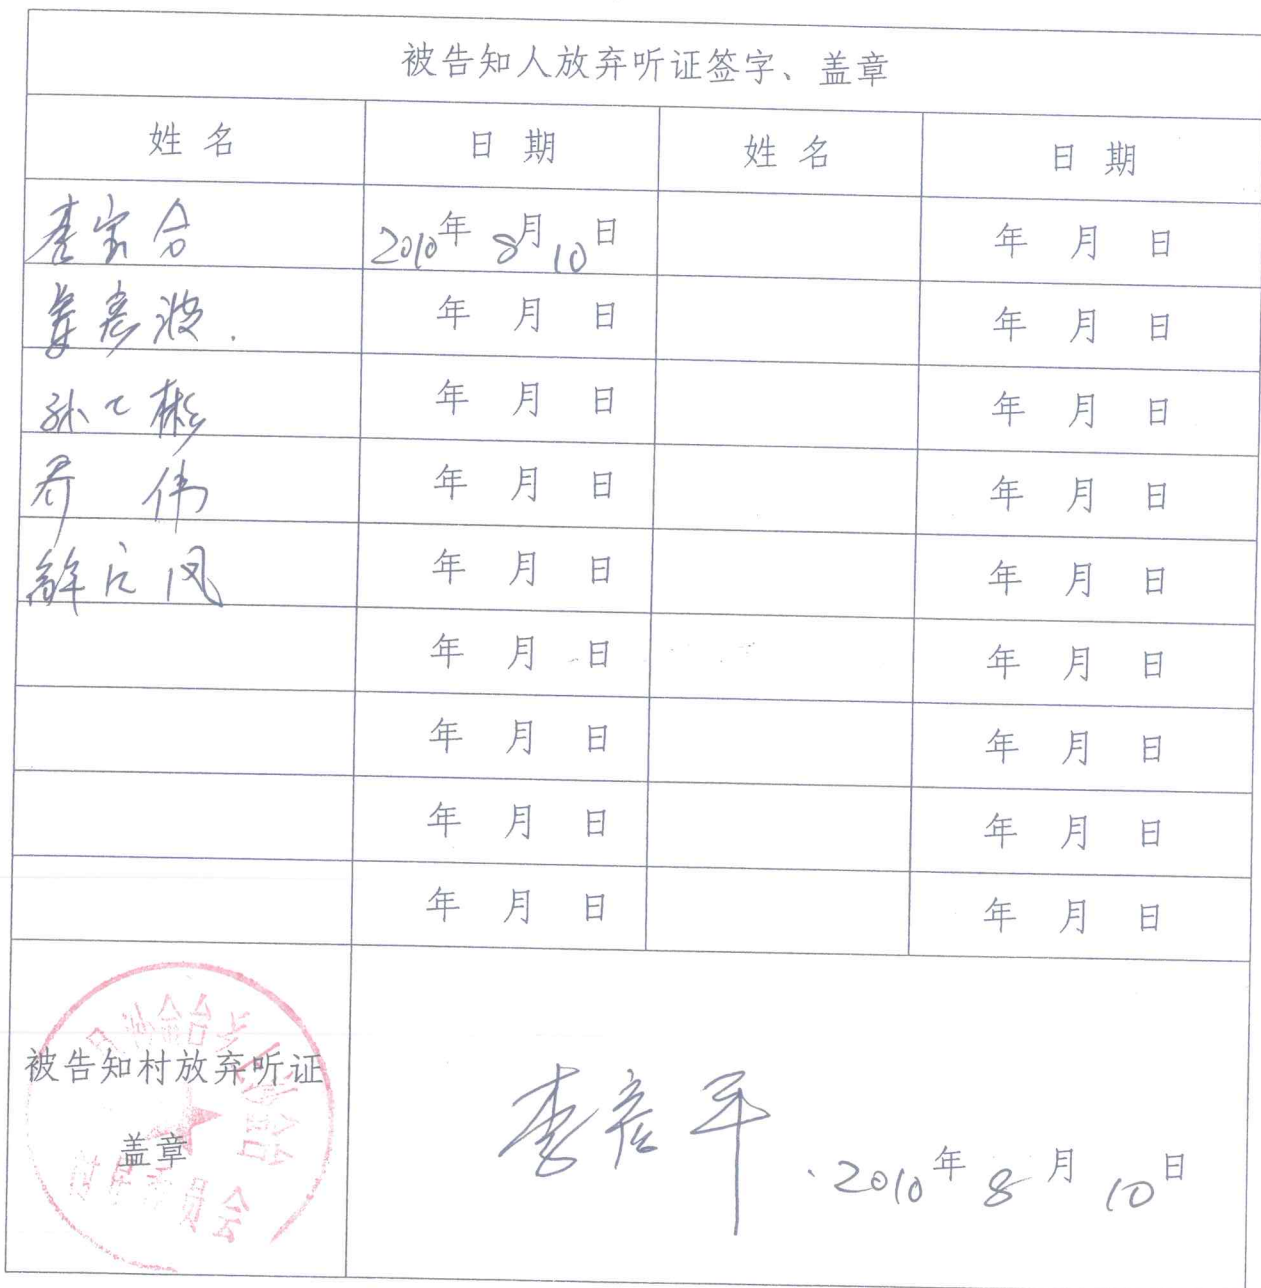 被告知人放弃听证签字、盖章
姓名 日期 姓名 日期
李宝合 2010年8月10日 年月日
姜彦波. 年月日 年月日
孙 彬 年月日 年月日
乔伟 年月日 年月日
解 凤 年月日 年月日
年月日 年月日
年月日 年月日
年月日 年月日
年月日 年月日
被告知村放弃听证
盖章
村民委员会
李彦平
2010年8月10日